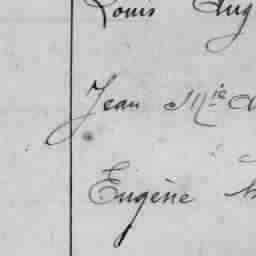 Louis Aug
Jean Mie A
Eugène